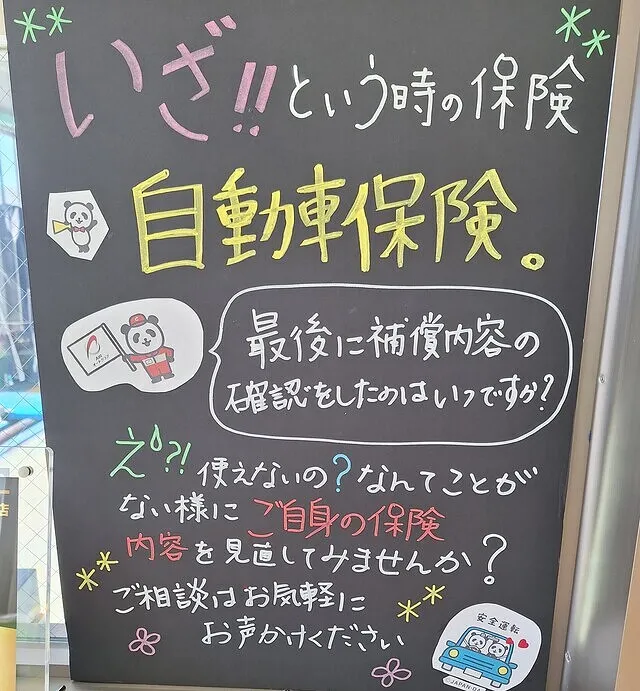 いざ!!という時の保険
自動車保険。
最後に補償内容の
確認をしたのはいつですか?
え?!使えないの?なんてことが
ない様にご自身の保険
内容を見直してみませんか?
ご相談はお気軽に
お声かけください
安全運転
店